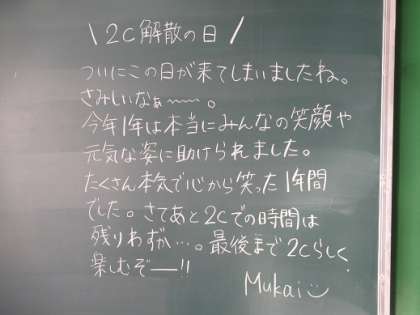 \ 2C解散の日 /
ついにこの日が来てしまいましたね。
さみしいなぁ〜〜。
今年1年は本当にみんなの笑顔や
元気な姿に助けられました。
たくさん本気で心から笑った1年間
でした。さてあと2Cでの時間は
残りわずか…。最後まで2Cらしく
楽しむぞー!!
Mukai